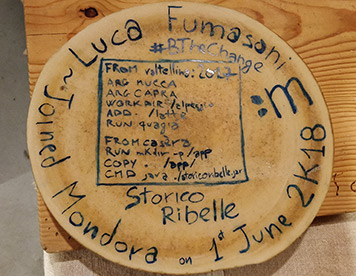 Luca Fumasoni
#BTheChange
FROM valtellina:2017
ARG MUCCA
ARG CAPRA
WORKDIR /alpeggio
ADD . /latte
RUN quagia
FROM casera
RUN mkdir -p /app
COPY . /app/
CMD java ./storicoribelle.jar
:m
Storico
Ribelle
Joined Mondora on 1st June 2K18